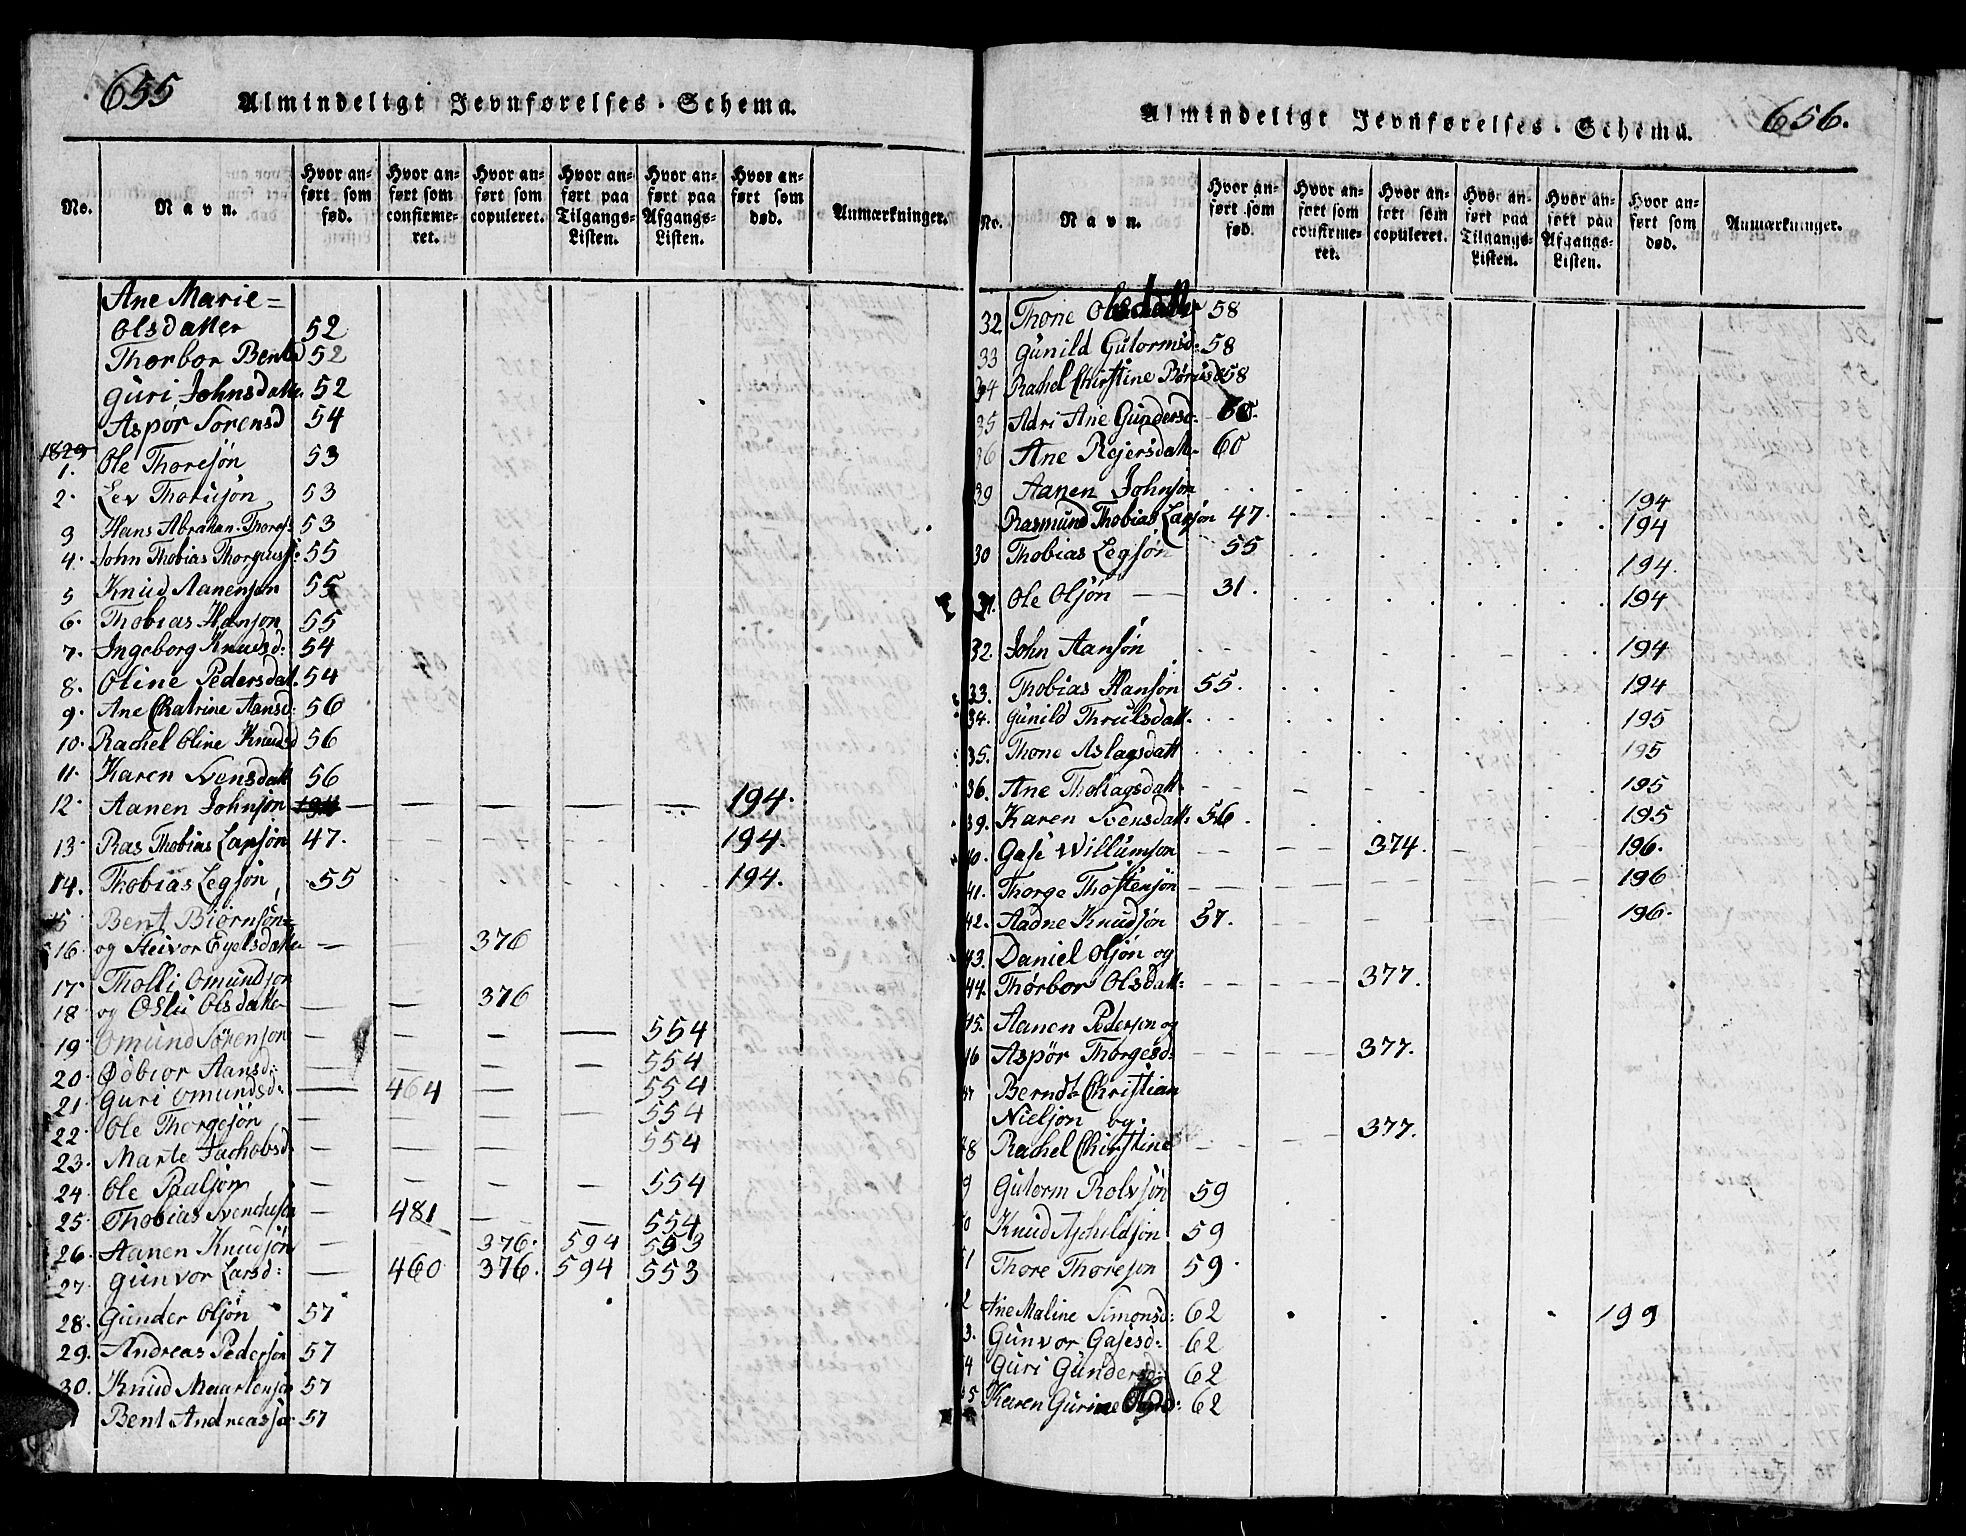 655
Almindeligt Jevnførelses-Schema.
No.
Navn.
Hvor anført som fød.
Hvor anført som confirmeret.
Hvor anført som copuleret.
Hvor anført paa Tilgangs-Listen.
Hvor anført paa Afgangs-Listen.
Hvor anført som død.
Anmærkninger.
Ane Marie=
Olsdatter 52
Thorbor Bentsd 52
Guri Johnsdatte. 52
Aspør Sorensd 54
1829
1. Ole Thoresøn 53
2. Lev 53
3 Hans Abraham Thores: 53
4. John Thobias 55
5 Knud Aanensøn 55
6. Thobias Hansøn 55
7. Ingeborg Knudsd: 54
8. Oline Pedersdat. 54
9. Ane Chatrine Aansd: 56
10. Rachel Oline Knudsd 56
11. Karen Svensdatt 56
12. Aanen Johnsøn — — — — — 194.
13. Ras Thobias Larsøn 47. 194.
14. Thobias Legsøn 55 194.
15 Bent Biørnsøn=
16. og Steivor Eyelsdatte — — 376
17. Tholli Omundsøn
18. og Oslu Olsdatte — — 376
19. Omund Sørensøn — — — — 554
20. Aansd: — — — — 554
21. Guri Omundsd: — 464 — 554
22. Ole Thorgesøn — — — — 554
23. Marte Jachobsd — 554
24. Ole Paalsøn — — — — 554
25. Thobias — 481 — — 554
26. Aanen Knudsøn — 376. 594 553
27. Gunvor Larsd: — 460 376. 594 553
28. Gunder Olsøn 57
29. Andreas Pedersøn 57
30. Knud Maartensøn 57
Bent Andreassø 57
656.
Almindeligt Jevnførelses-Schema.
No.
Navn.
Hvor anført som fød.
Hvor anført som confirmeret.
Hvor anført som copuleret.
Hvor anført paa Tilgangs-Listen.
Hvor anført paa Afgangs-Listen.
Hvor anført som død.
Anmærkninger.
32 Thone Olsdatter 58
33 Gunild Gutormsd: 58
34 Rachel Christine 58
35 Adri Ane Gundersd: 60.
36 Ane Rejersdatt 60
39 Aanen Johnsøn 194
Rasmund Thobias Larsøn 47. 194
30 Thobias Legsøn 55 194.
31. Ole Olsøn — 31. 194
32. John Aansøn 194
33. Thobias Hansøn 55. 194
34. Gunild Thrulsdatt. 195
35. Thone Aslagsdatt 195
36. Ane 195
39. Karen Svensdatt. 56. 195
40. Gase Willumsøn — — 374. — — 196.
41. Thorge Thostensøn — — — — — 196
42. Aadne Knudsøn 57. — — — — 196.
43. Daniel Olsøn og
44. Thørbor Olsdatt: — — 377.
45. Aanen Pedersøn og
46 Aspør Thorgesd: — — 377.
47 Bernd= Christian
Nielsøn og.
48 Rachel Christine — — 377.
9 Gutorm Rolvsøn 59
50 Knud 59
51 Thore Thoresøn 59.
2 Ane Maline Simonsd: 62 199
3. Gunvor Gasesd: 62
54 Guri Gundersd: 62
55 Karen Gurine 62